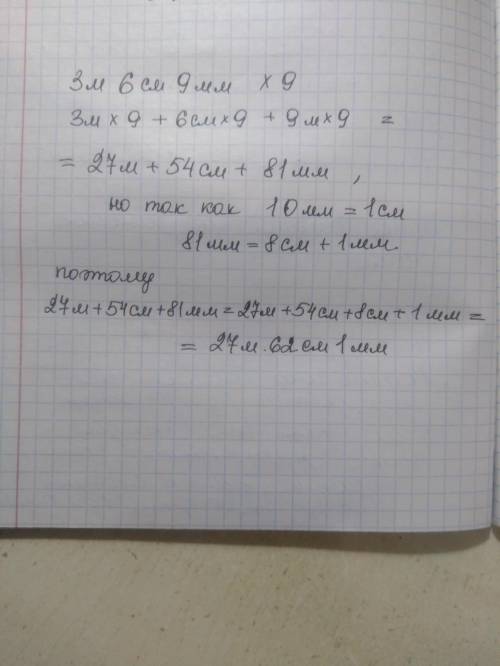 3м 6см 9мм × 9
3м × 9 + 6см × 9 + 9м × 9 =
= 27м + 54см + 81мм ,
но так как 10мм = 1см
81мм = 8см + 1мм.
поэтому
27м + 54см + 81мм = 27м + 54см + 8см + 1мм =
= 27м. 62см 1мм